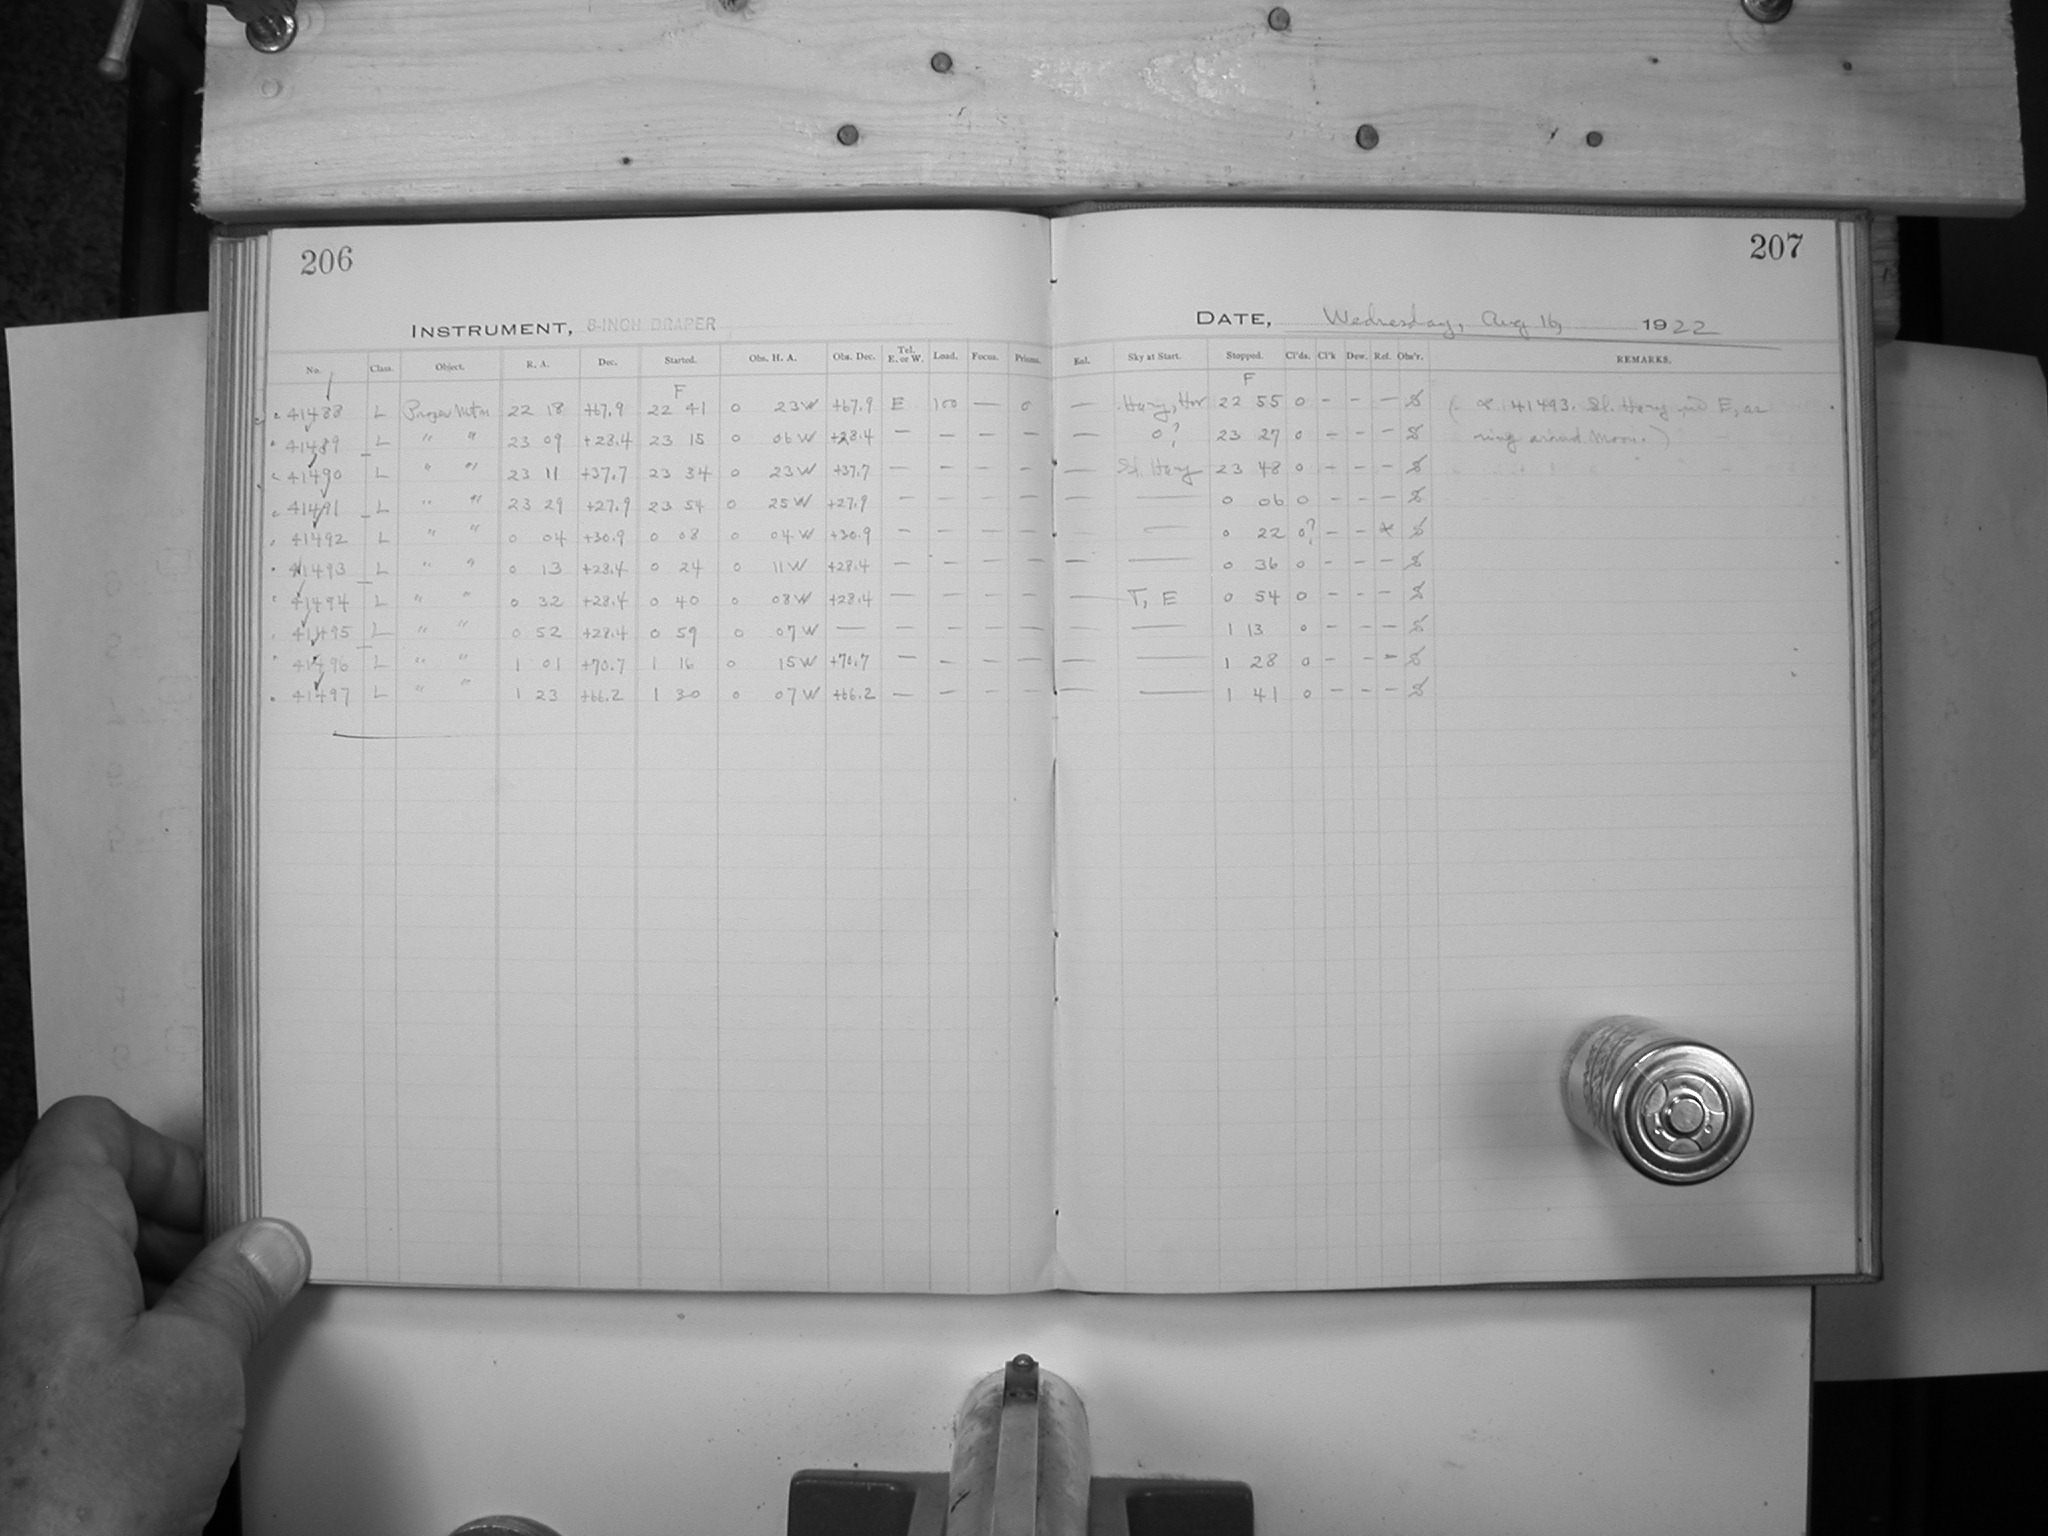 206
207
INSTRUMENT, 8-INCH DRAPER
DATE, Wednesday, Aug 16, 1922
No. Class. Object. R. A. Dec. Started. Obs. H. A. Obs. Dec. Tel. E. or W. Load. Focus. Prisms. Eol. Sky at Start. Stopped. Cl'ds. Cl'k Dew. Ref. Obs'r. REMARKS.
F F
41488 L Proper Mtn 22 18 +67.9 22 41 0 23 W +67.9 E 100 — 0 — Hazy, Hor 22 55 0 - - - S 41493. Sl. Hazy in E, as
41489 L " " 23 09 +28.4 23 15 0 06 W +28.4 — — — — — 0? 23 27 0 - - - S ring around Moon.)
41490 L " " 23 11 +37.7 23 34 0 23 W +37.7 — — — — — Sl. Hazy 23 48 0 - - - S
41491 L " " 23 29 +27.9 23 54 0 25 W +27.9 — — — — — — 0 06 0 - - - S
41492 L " " 0 04 +30.9 0 08 0 04 W +30.9 — — — — — — 0 22 0? - - * S
41493 L " " 0 13 +28.4 0 24 0 11 W +28.4 — — — — — — 0 36 0 - - - S
41494 L " " 0 32 +28.4 0 40 0 08 W +28.4 — — — — — T, E 0 54 0 - - - S
41495 L " " 0 52 +28.4 0 59 0 07 W — — — — — — — 1 13 0 - - - S
41496 L " " 1 01 +70.7 1 16 0 15 W +70.7 — — — — — — 1 28 0 - - - S
41497 L " " 1 23 +66.2 1 30 0 07 W +66.2 — — — — — — 1 41 0 - - - S